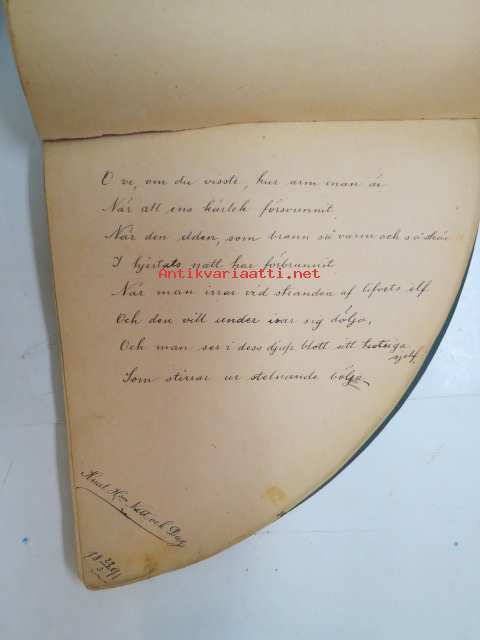 O ve, om du visste, hur arm man är
När all ens kärlek försvunnit.
När den elden, som brann så varm och så skär
I hjertats natt har förbrunnit
Antikvariaatti.net
När man irrar vid stranden af lifvets elf
Och den vill under isar sig dölja,
Och man ser i dess djup blott ett trotsiga
sjelf,
Som stirrar ur stelnande bölja
Knut H Natt och Dag
18 23/3 91